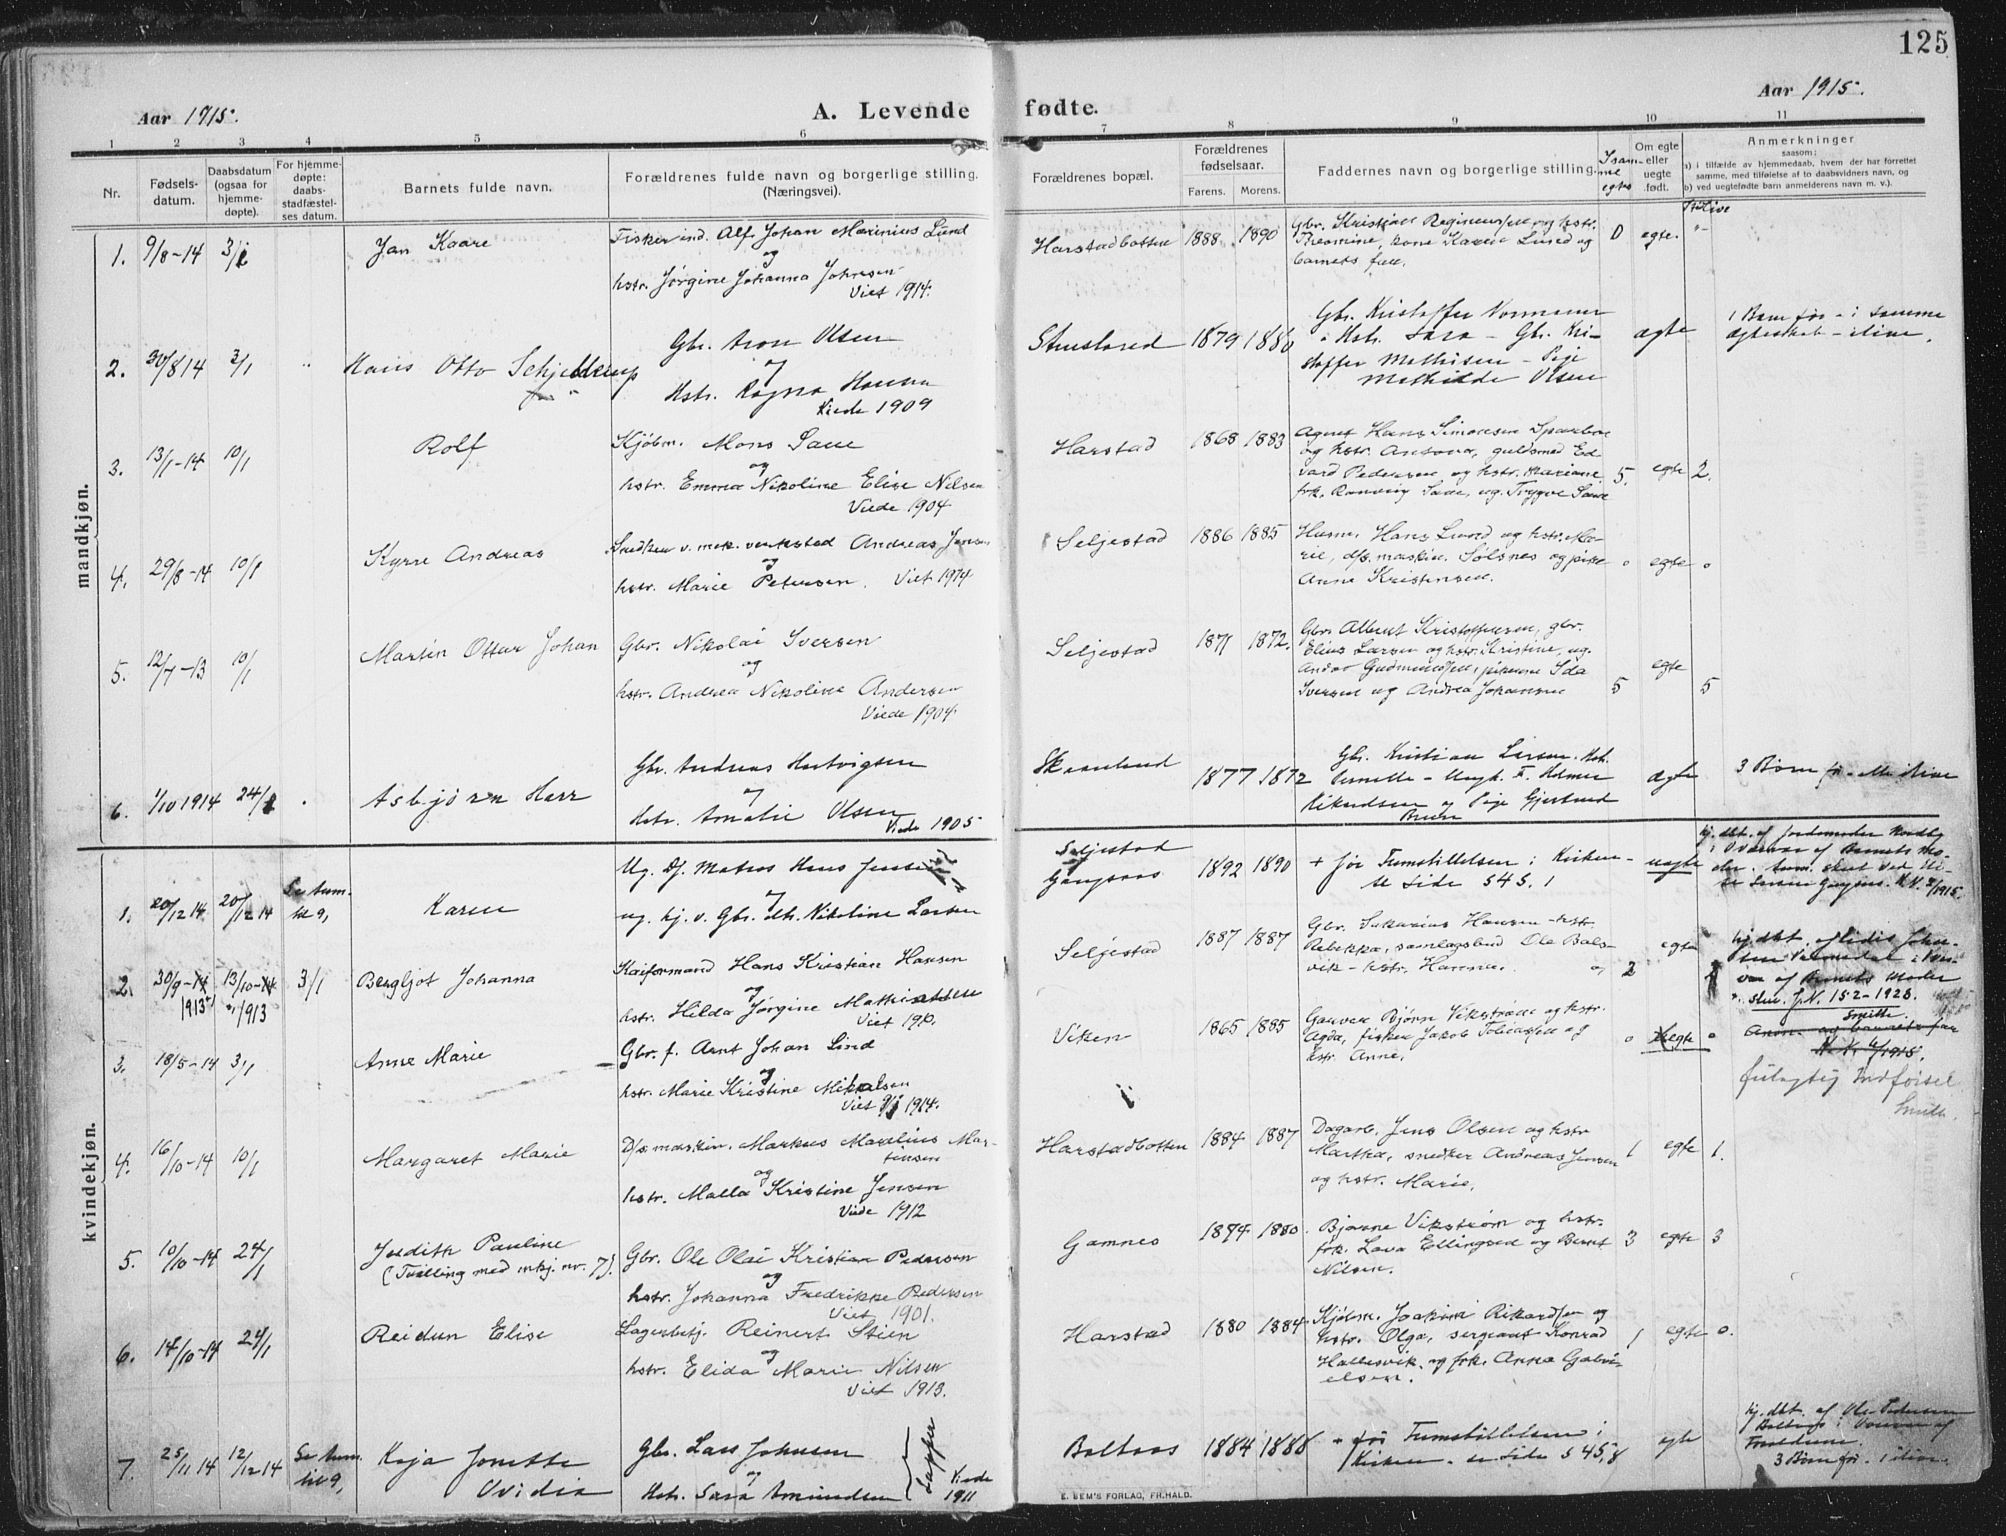 125
Aar 1915.
A. Levende
fødte.
Aar 1915.
1 2 3 4 5 6 7 8 9 10 11
Nr.
Fødsels-
datum.
Daabsdatum
(ogsaa for
hjemme-
døpte).
For hjemme-
døpte:
daabs-
stadfæstel-
ses datum.
Barnets fulde navn.
Forældrenes fulde navn og borgerlige stilling.
(Næringsvei).
Forældrenes bopæl.
Forældrenes
fødselsaar.
Farens. Morens.
Faddernes navn og borgerlige stilling.
I sam-
me
egtes
Om egte
eller
uegte
født.
Anmerkninger
saasom:
a) i tilfælde av hjemmedaab, hvem der har forrettet
samme, med tilføielse af to daabsvidners navn, og
b) ved uegtefødte barn anmelderens navn m. v.).
mandkjøn.
1. 9/8-14 3/1 Jan Kaare
Fisker ind. Alf Johan Marinius Lund
og
hstr. Jørgine Johanna Johnsen
Viet 1914.
Harstadbotten 1888 1890
Gbr. Kristian Reginiussen og hstr.
kone Karen Lund og
barnets far.
0 egte.
2. 30/8 14 3/1 Hans Otto Schjelderup
Gbr. Aron Olsen
og
Hstr. Ragna Hanna
Viede 1909
1879 1880
Gbr. Kristoffer Normann
Hstr. Sara - Gbr. Kri-
stoffer Mathisen - Pige
Mathilde Olsen
ægte
1 Barn før i samme
ægteskab - ilive.
3. 13/1-14 10/1 Rolf
Kjøbm. Mons Saue
og
hstr. Emma Nikoline Elise Nilsen
Viede 1904
Harstad 1868 1883
Agent Hans Simonsen Sparboe
og hstr. Antona, guldsmed Ed-
vard Pedersen og hstr. Mariane
frk. Ranveig Saue, ug. Trygve Saue
5. egte 2.
4. 29/8-14 10/1 Kyrre Andreas
Snedker v. mek. verksted Andreas Jensen
og
hstr. Marie Petersen. Viet 1914
Seljestad 1886 1885
Husm. Hans Lund og hstr. Ma-
rie, d/s. maskin. Sølsnes og pike
Anne Kristensen.
0 egte 0
5. 12/7-13 10/1 Martin Ottar Johan
Gbr. Nikolai Iversen
og
hstr. Andrea Nikoline Andersen
Viede 1904.
Seljestad 1871 1872.
Gbr. Albert Kristoffersen, gbr.
Elius Larsen og hstr. Kristine, ug.
Andor Gudmundsen, pikerne Ida
Iversen og Andrea Johansen
5 egte 5
6. 1/10 1914 24/1 Asbjørn Harr
Gbr. Andreas Hartvigsen
og
Hstr. Amalie Olsen
Viede 1905
Skaanland 1877 1872
Gbr. Kristian Larsen. Hst.
Pernelle - Ungk. F. Helmer
Rikardsen og Pige Gjertrud
ægte
3 Børn før - alle ilive
kvindekjøn.
1. 20/12 14 20/12 14 Se Anm.
til 9, Karen
Ug. Df. Matros Hans Jensen
og
ug. hj. v. Gbr. dtr. Nikoline Larsen
Seljestad
Gangsaas 1892 1890
+ før Fremstillelsen i Kirken
se side 545. 1
uægte
hj. dbt. af Jordemoder Nordby
i Overvær af Barnets Mo-
2. 30/9-14 13/10-14 3/1 Bergljot Johanna
1913 1913
Kaiformand Hans Kristian Hansen
og
hstr. Hilda Jørgine Mathiassen
Viet 1910.
Seljestad 1887 1887
Gbr. Sakarias Hansen - hstr.
Rebekka, samlagsbud Ole Bals-
vik - hstr. Hanna.
2 egte
af Barnets Moder
skr. J.N. 152-1928.
Smith.
3. 18/5-14 3/1 Anne Marie
Gbr. f. Arnt Johan Lind
og
hstr. Marie Kristine Mikalsen
Viet 1914.
Viken 1865 1885
Garver Bjørn Vikstrøm og hstr.
Agda, fisker Jakob Tobiassen og
hstr. Anne.
0 uegte 0
Anm. og barnets far
K.K. 4/1915.
fuldgyldig Indførsel
Smith.
4. 16/10-14 10/1 Margaret Marie
D/s. maskin. Markus Marelius Mar-
tinsen
og
hstr. Malla Kristine Jensen
Viede 1912
Harstadbotten 1884 1887
Dagarb. Jens Olsen og hstr
Martha, snedker Andreas Jensen
og hstr. Marie.
1 egte 1.
5. 10/10-14 24/1 Judith Pauline
(Tvilling med mkj. nr. 7).
Gbr. Ole Olai Kristian Pedersen
og
hstr. Johanna Fredrikke Pedersen
Viet 1901.
Gamnes 1874 1880
Bjarne Vikstrøm og hstr.
frk. Lava Ellingsen og Bernt
Nilsen.
3 egte 3
6. 14/10-14 24/1 Reidun Elise
Lagerbetj. Reinert Stien
og
hstr. Elida Marie Nilsen
Viet 1913.
Harstad 1880 1884
Kjøbm. Joakim Rikardsen og
hstr. Olga, sergeant Konrad
Hallesvik, og frk. Anna Gabri-
elsen.
1 egte 0.
7. 25/11 14 12/12 14 Se Anm.
til 9, Kaja Jonette
Ovidia
Gbr. Lars Johnsen
og
Hstr. Sara Amundsen
Lapper
Viede
1911
Boltaas 1884 1888
+ før Fremstillelsen i
Kirken. se side 545, 8
egte
hj. dbt. af Ole Pedersen
Boltaas i Overvær af
Forældrene.
3 Børn før. 1 ilive.
E. SEM'S FORLAG, FR.HALD.